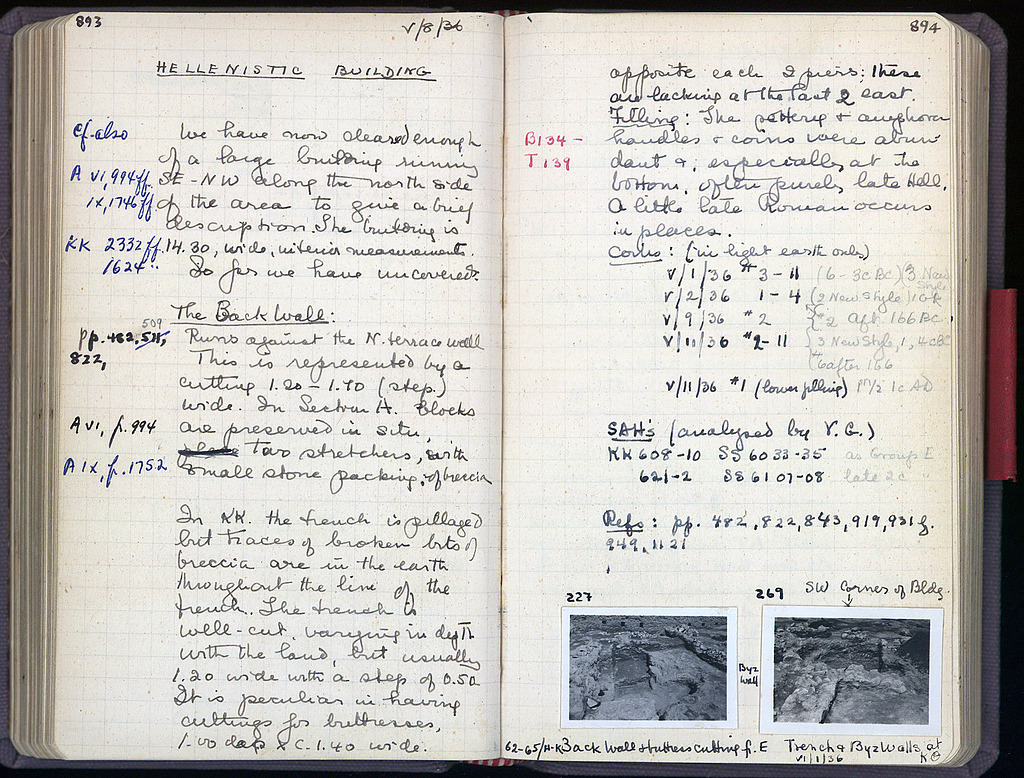 893
V/8/36
HELLENISTIC BUILDING
Cf. also
A VI, 994 ff.
IX, 1746 ff
KK 2332 ff.
1624
We have now cleared enough
of a large building running
SE-NW along the north side
of the area to give a brief
description. The building is
14.30, wide, interior measurements.
So far we have uncovered:
The Back Wall:
509
pp. 482, 511,
822,
Runs against the N. terrace wall
This is represented by a
cutting 1.20 - 1.70 (step)
wide. In Section A. Blocks
A VI, p. 994
are preserved in situ,
A IX, p. 1752
Two stretchers, with
small stone packing, of breccia
In KK. the trench is pillaged
but traces of broken bits of
breccia are in the earth
throughout the line of the
trench. The trench is
well-cut, varying in depth
with the land, but usually
1.20 wide with a step of 0.50
It is peculiar in having
cuttings for buttresses,
1.00 deep x c. 1.40 wide.
894
opposite each 2 piers; these
are lacking at the last 2 east.
B134 -
T 139
Filling: The pottery & amphora
handles & coins were abun
dant &, especially at the
bottom, often purely late Hell.
A little late Roman occurs
in places.
Coins: (in light earth only)
V/1/36 #3-11 (6-3c BC) 3 New Style
V/2/36 1-4 (2 New Style) 1 Gk
V/9/36 #2 #2 Aft. 166 BC
V/10/36 #2-11 3 New Style, 1, 4c BC
#6 after 166
V/11/36 #1 (lower filling) 1c AD
SAH's (analysed by V.G.)
KK 608-10 SS 6033-35 as Group E
621-2 SS 6107-08 late 2c "
Refs: pp. 482, 822, 843, 919, 931 f.
949, 1121
227
269
SW Corner of Bldg.
Byz
Wall
62-65/A-K Back Wall & buttress cutting f. E
Trench & Byz Walls, at
VI/1/36